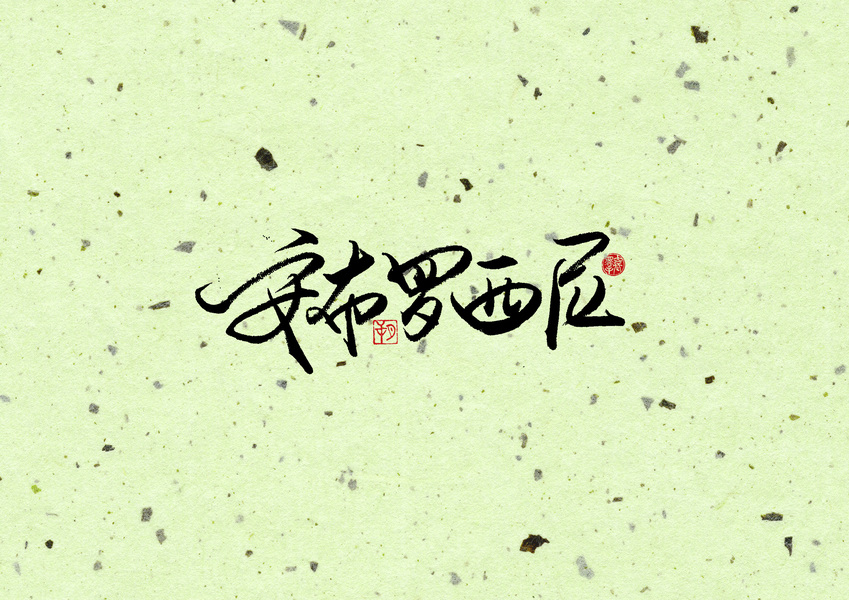 安布罗西尼